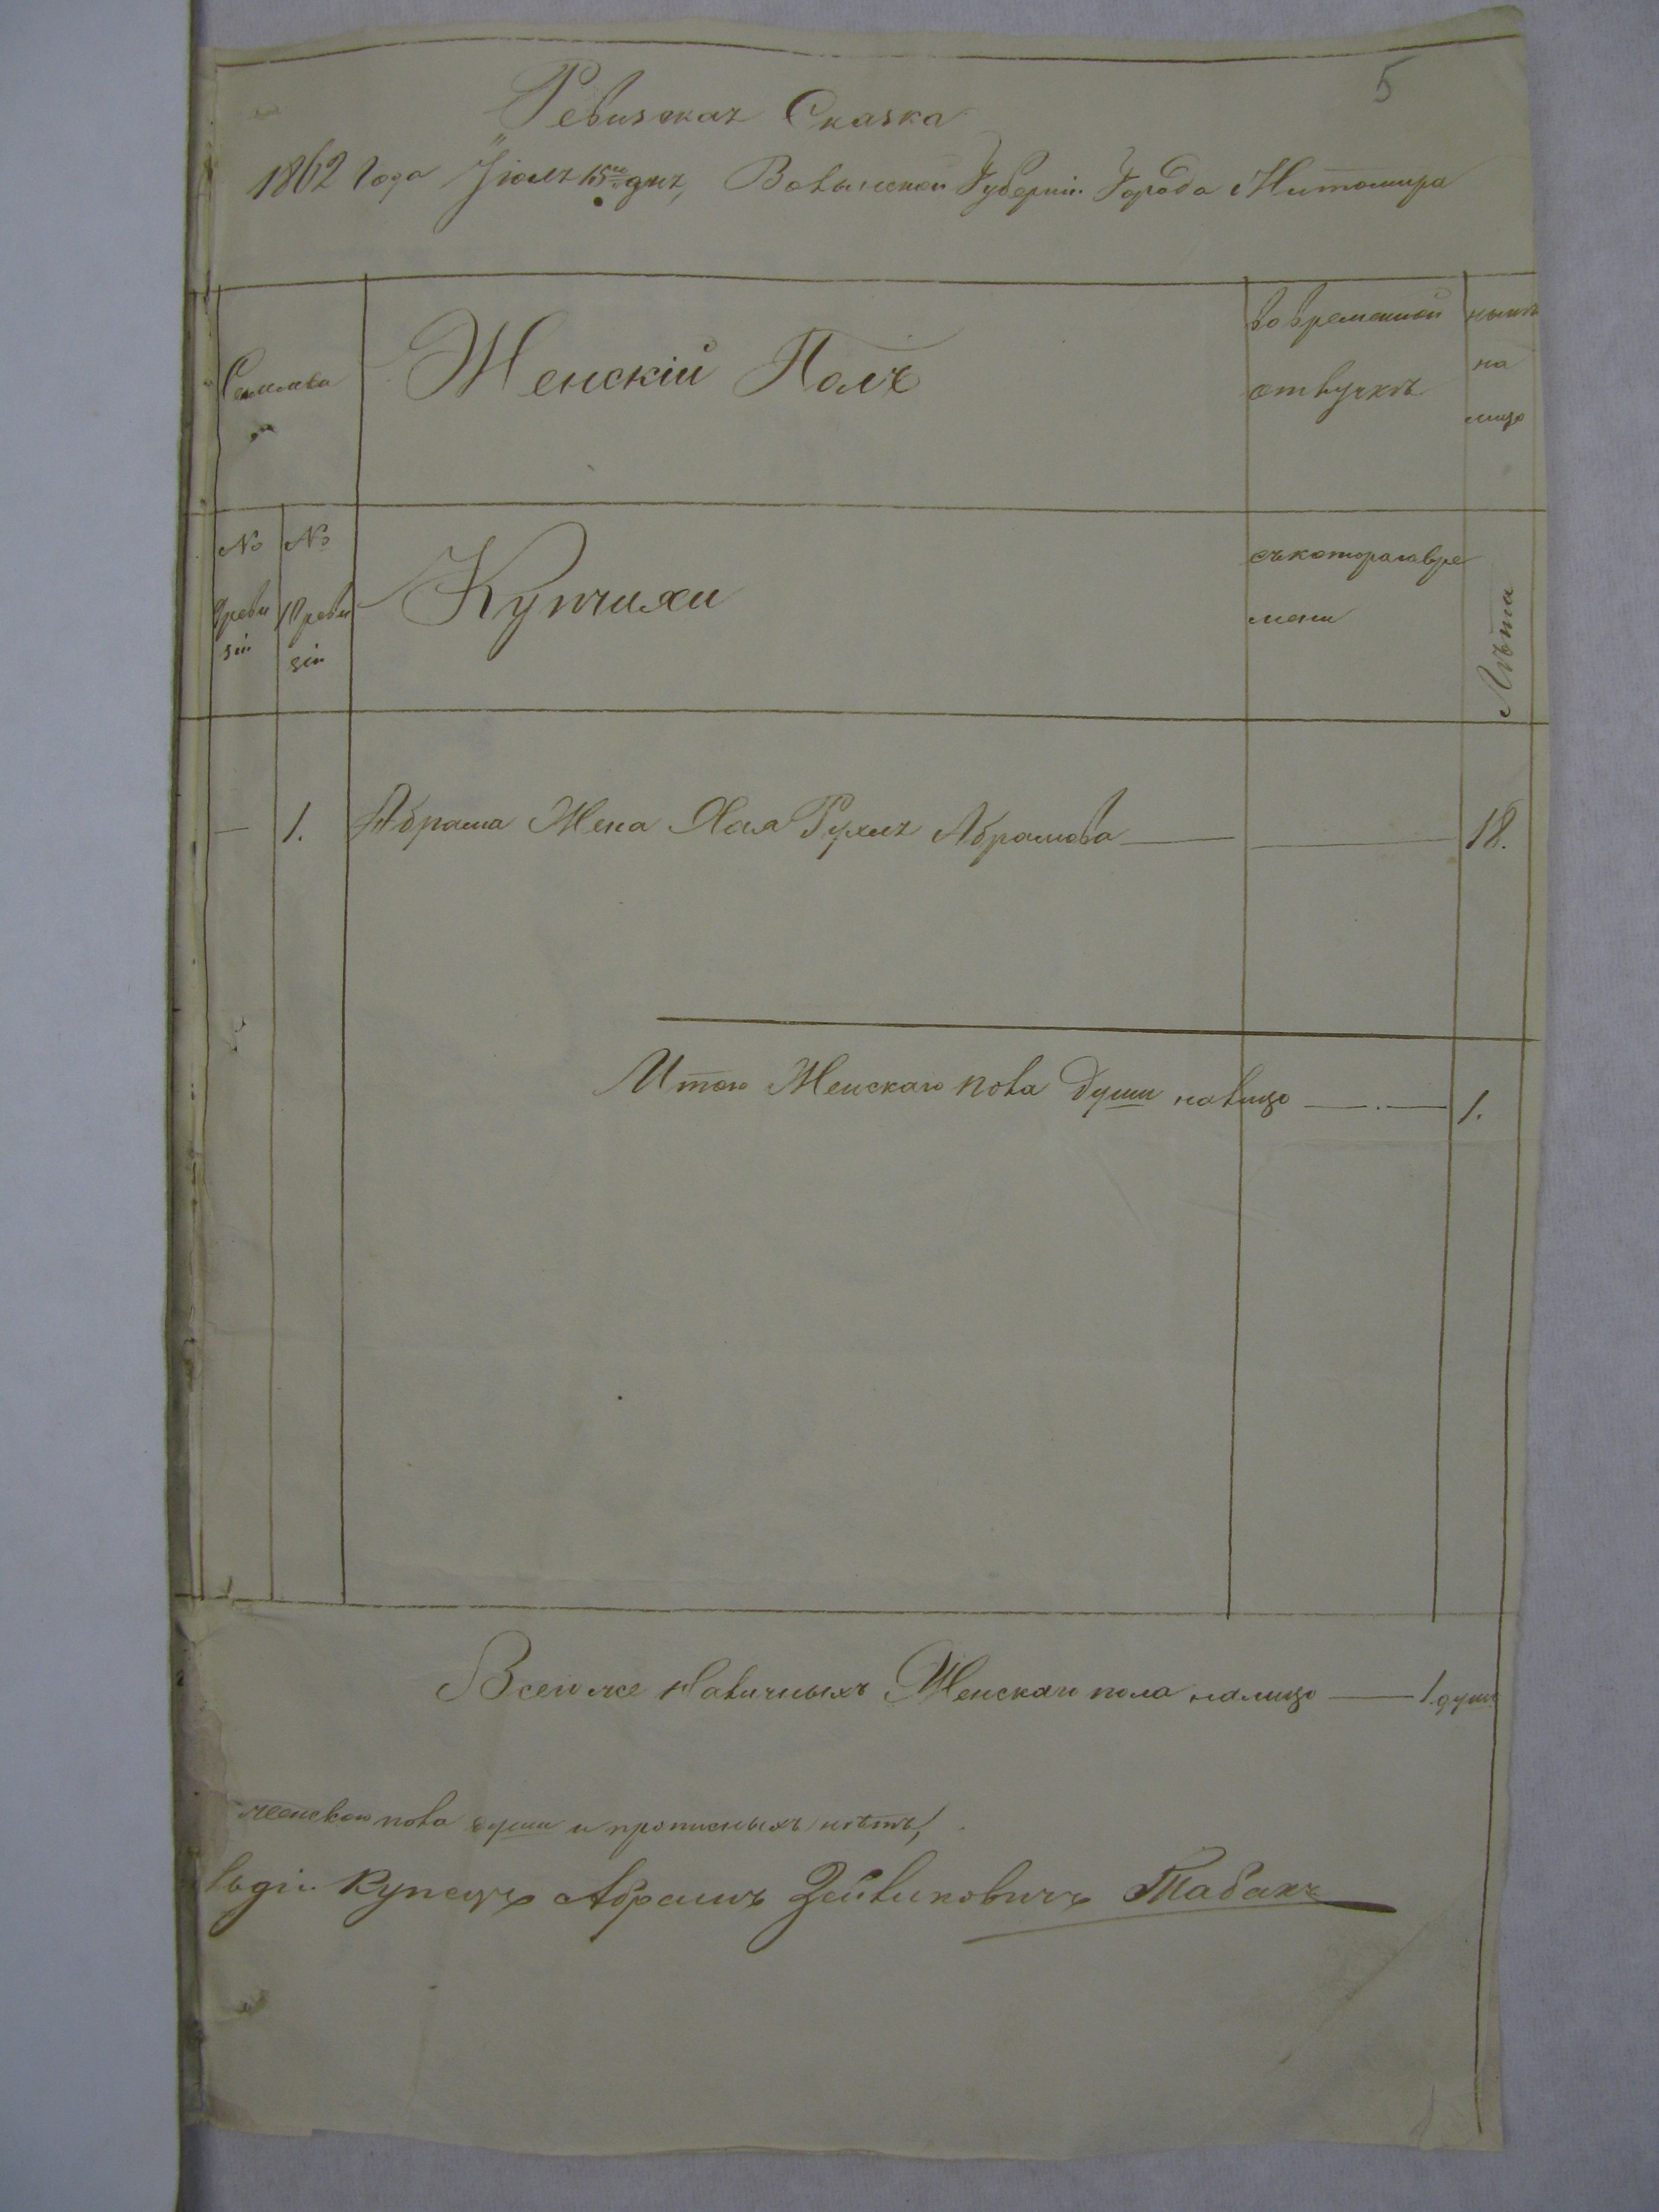 5
Ревизская Сказка
1862 Года Іюля 15го дня, Волынской Губерніи Города Житомира
Семейства
Женскій Полъ
во временной
отлучкѣ
нынѣ
на
лицо
№
9 реви
зіи
№
10 реви
зіи
Купчихи
съ котораго вре
мени
Лѣта
— 1. Абрама Жена Хая Рухля Абрамова — — 18.
Итого Женскаго пола души налицо — . — 1.
Всего же Наличныхъ Женскаго пола налицо — 1 души
женскаго пола души и прописныхъ нѣтъ,
Купецъ Абрамъ Зейликовичъ Табакъ